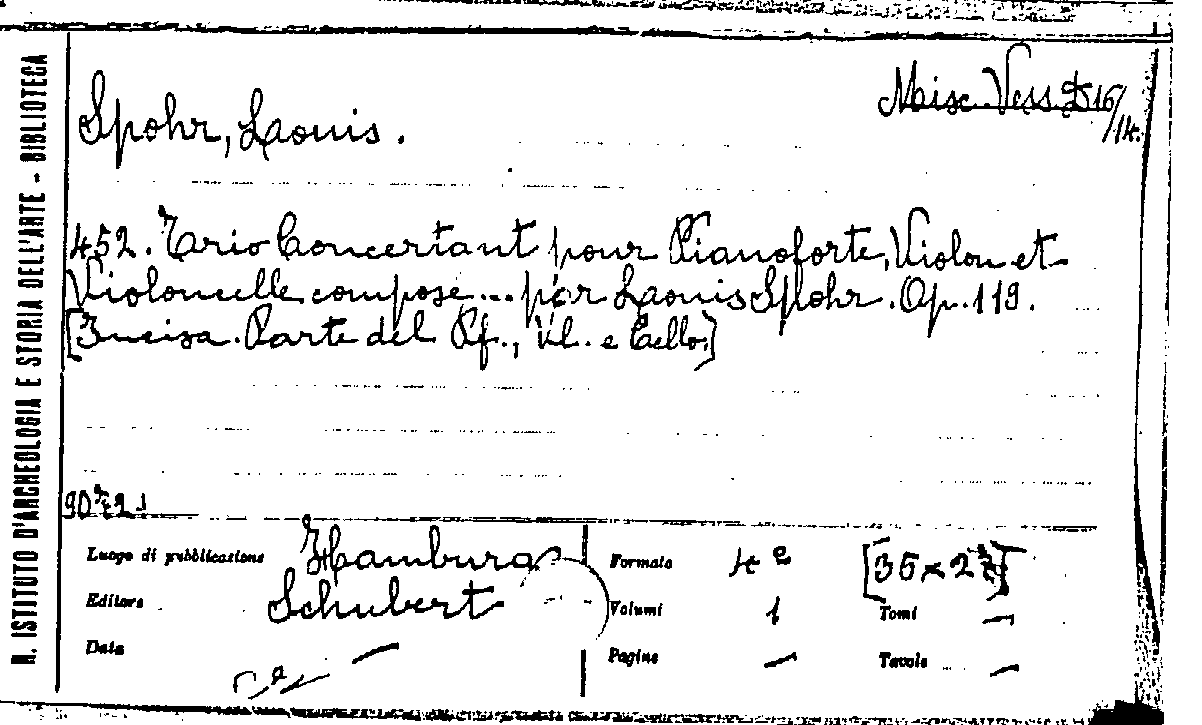 R. ISTITUTO D'ARCHEOLOGIA E STORIA DELL'ARTE - BIBLIOTECA
Misc. Vess. 16/14.
Spohr, Laouis.
452. Trio Concertant pour Pianoforte, Violon et
Violoncelle compose... par Laouis Splohr. Op. 119.
[Incisa. Parte del Pf., Vl. e Cello.]
Luogo di pubblicazione Hamburg
Editore Schubert
Data —
Formato 4º [35 x 27]
Volumi 1 Tomi —
Pagine — Tavole —